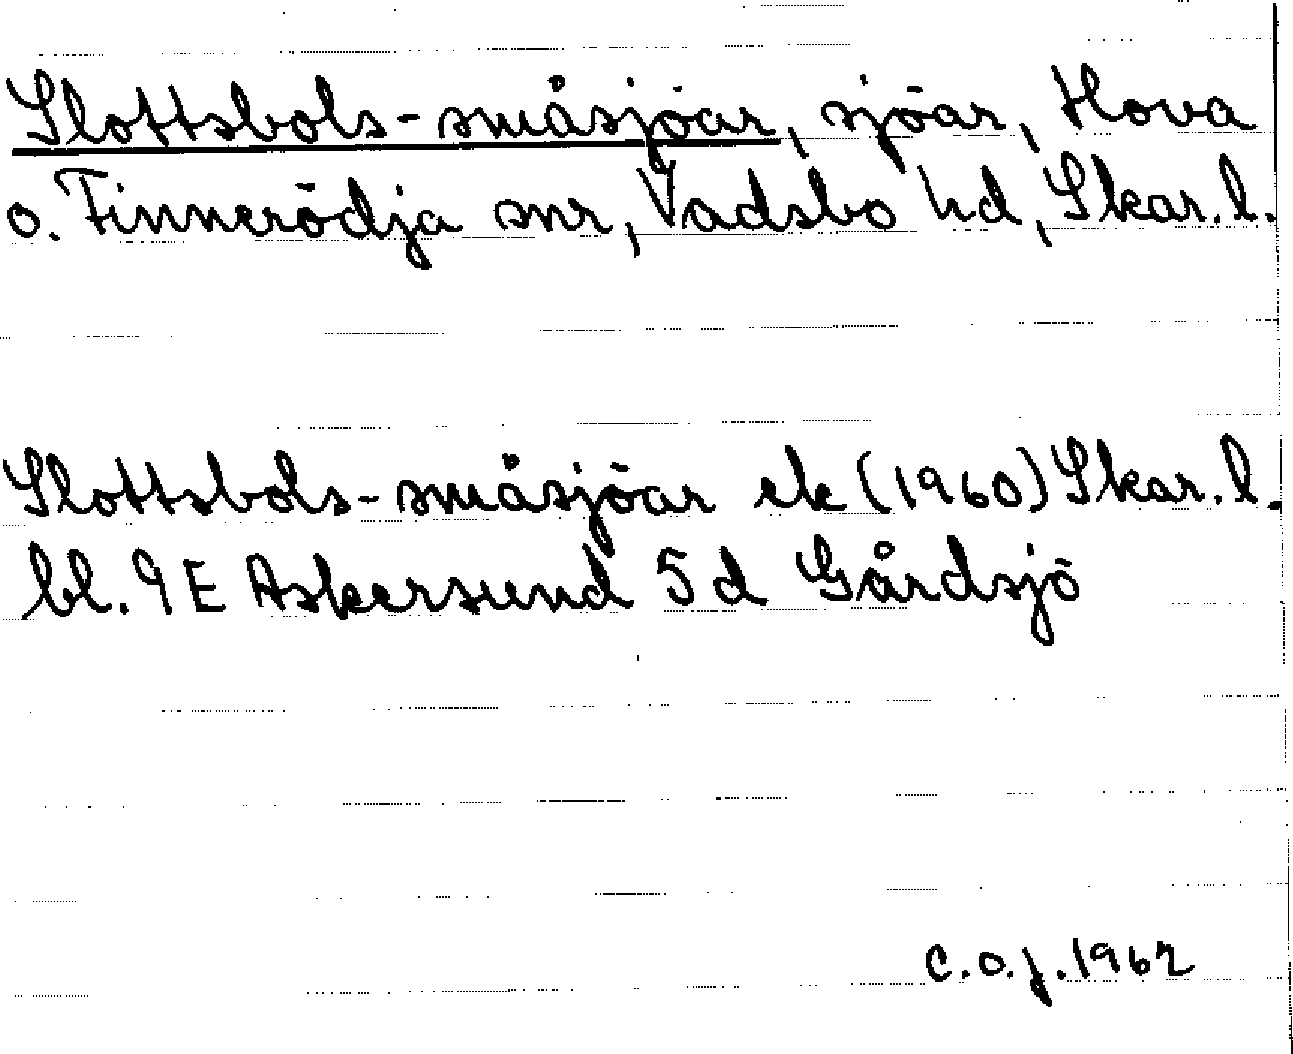 Slottsbols-småsjöar, sjöar, Hova
o. Finnerödja snr, Vadsbo hd, Skar. l.
Slottsbols-småsjöar ek (1960) Skar. l.
bl. 9 E Askersund 5 d Gårdsjö
C.O.J. 1962